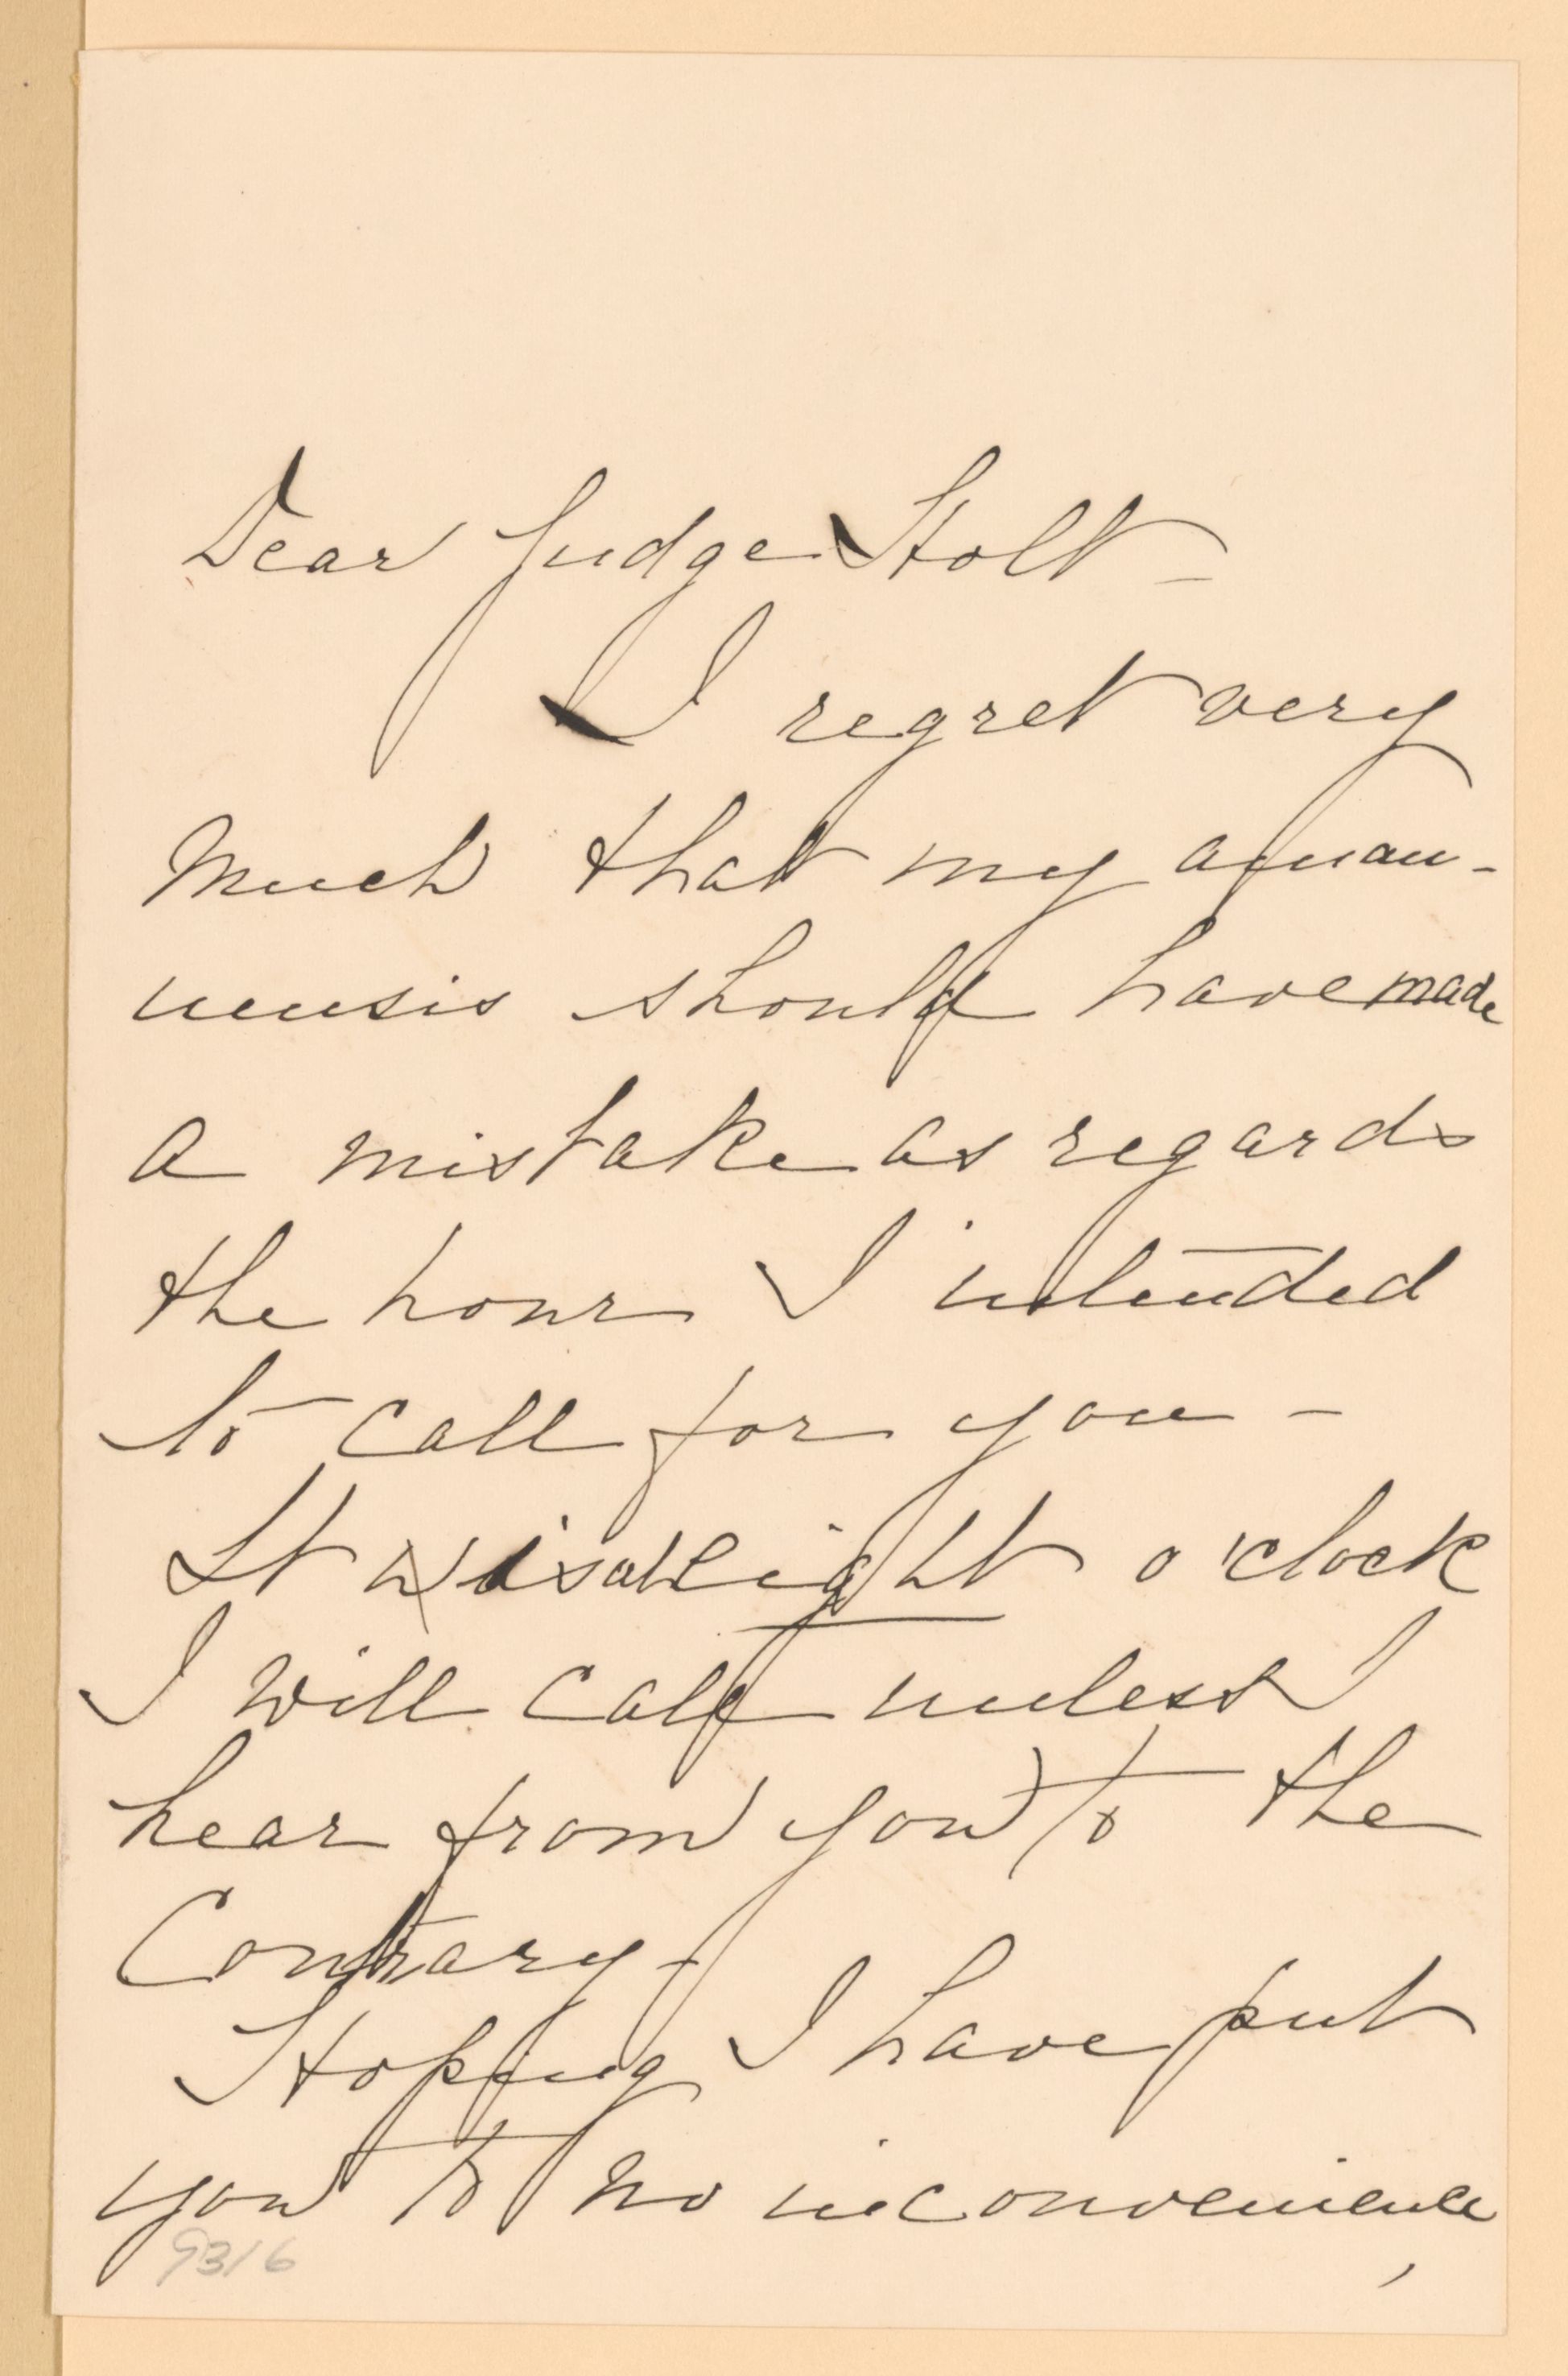 Dear Judge Holt –
I regret very
much that my aman-
uensis should have made
a mistake as regards
the hour I intended
to call for you –
It is at eight o'clock
I will call unless I
hear from you to the
Contrary –
Hoping I have put
you to no inconvenience,
9316